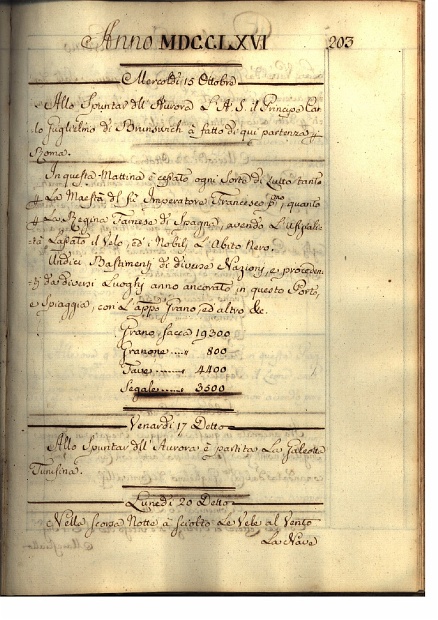 Anno MDCCLXVI 203
Mercoldì 15 Ottobre
Allo Spuntar dll' Aurora L'A. S. il Principe Car-
lo Guglielmo di Brunswich à fatto di quì partenza p
Roma.
In questa Mattina è cessato ogni Sorte di Lutto tanto
p La Maestà dl fù Imperatore Francesco p.mo, quanto
p La Regina Farnese di Spagna, avendo L'
=tà Lasciato il Velo, ed i Nobili L'Abito Nero.
Undici Bastimenti di diverse Nazioni, e proceden-
=ti da diversi Luoghi anno ancorato in questo Porto,
e Spiaggia, con L'app.o Grano, ed altro &c.
Grano Sacca 19300
Granone .... 800
Fave ....... 4400
Segale ...... 3500
Venardì 17 Detto
Allo Spuntar dll' Aurora è partita La Galeotta
Tunisina.
Lunedì 20 Detto
Nella scorsa Notte à sciolto Le Vele al Vento
La Nave